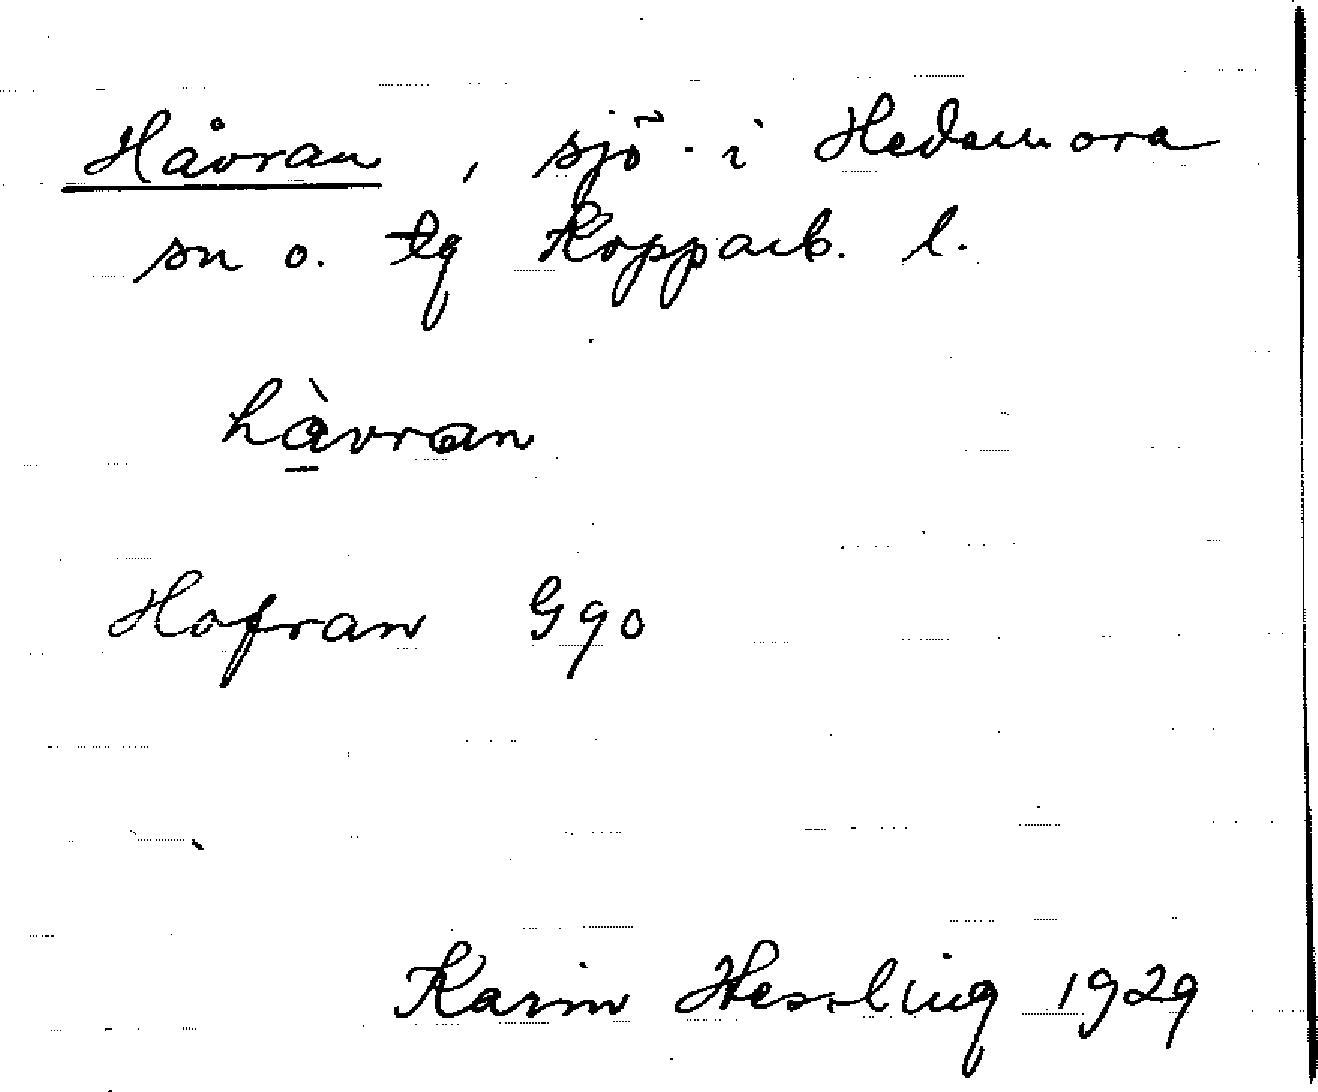 Håvran, sjö i Hedemora
sn o. tg Kopparb. l.
hàvran
Hofran G90
Karin Hessling 1929